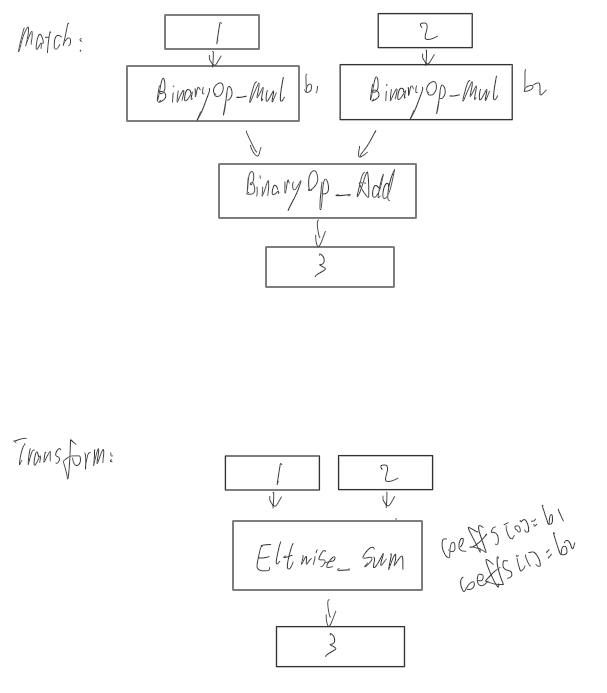 Match:
1
2
BinaryOp_Mul b1
BinaryOp_Mul b2
BinaryOp_Add
3
Transform:
1
2
Eltwise_sum
coeffs[0]=b1
coeffs[1]=b2
3